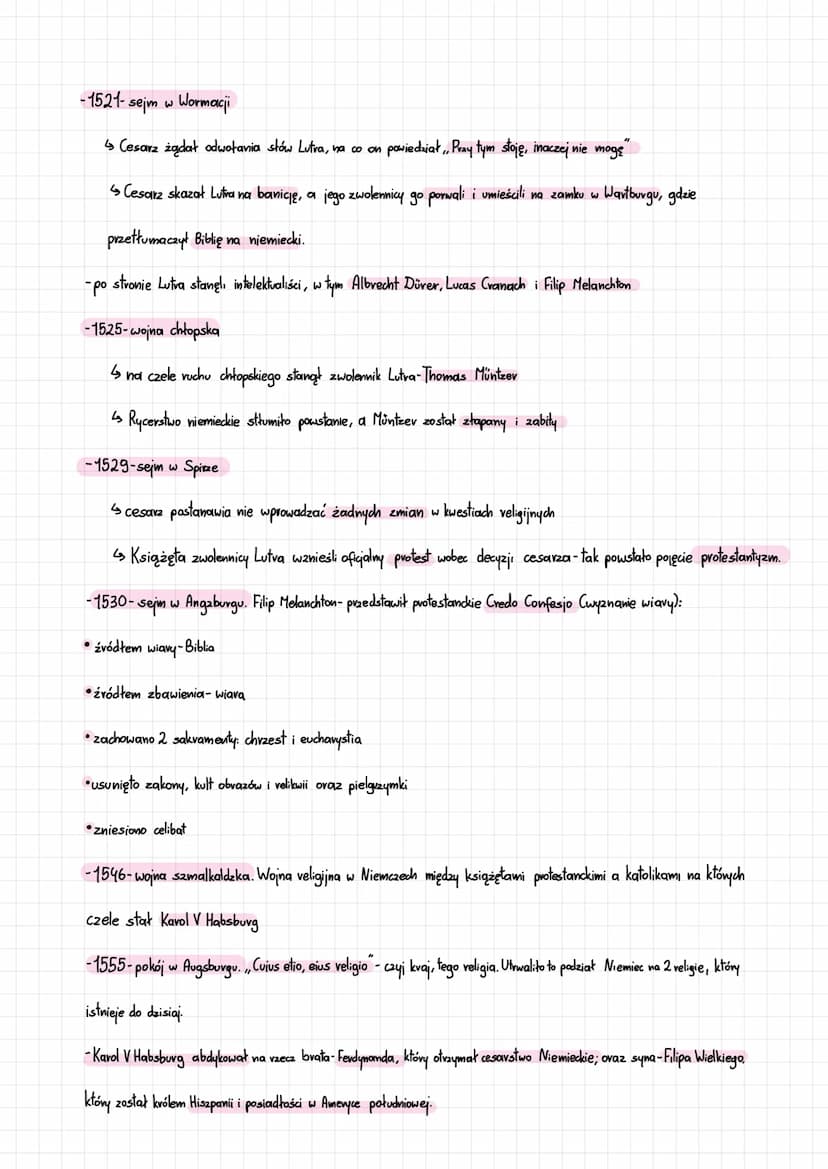 -1521- sejm w Wormacji
↳ Cesarz żądał odwołania słów Lutra, na co on powiedział „Przy tym stoję, inaczej nie mogę"
↳ Cesarz skazał Lutra na banicję, a jego zwolennicy go porwali i umieścili na zamku w Wartburgu, gdzie
przetłumaczył Biblię na niemiecki.
-po stronie Lutra stanęli intelektualiści, w tym Albrecht Dürer, Lucas Cranach i Filip Melanchton
-1525-wojna chłopska
↳ na czele ruchu chłopskiego stanął zwolennik Lutra-Thomas Müntzer
↳ Rycerstwo niemieckie stłumiło powstanie, a Müntzer został złapany i zabity
-1529-sejm w Spirze
↳ cesarz postanawia nie wprowadzać żadnych zmian w kwestiach religijnych
↳ Książęta zwolennicy Lutra wznieśli oficjalny protest wobec decyzji cesarza-tak powstało pojęcie protestantyzm.
-1530- sejm w Angzburgu. Filip Melanchton- przedstawił protestanckie Credo Confesjo (wyznanie wiary):
• źródłem wiary-Biblia
• źródłem zbawienia- wiara
• zachowano 2 sakramenty: chrzest i eucharystia
• usunięto zakony, kult obrazów i relikwii oraz pielgrzymki
• zniesiono celibat
-1546-wojna szmalkaldzka. Wojna religijna w Niemczech między książętami protestanckimi a katolikami na których
czele stał Karol V Habsburg
-1555-pokój w Augsburgu. „Cuius etio, eius religio"- czyj kraj, tego religia. Utrwaliło to podział Niemiec na 2 religie, który
istnieje do dzisiaj.
-Karol V Habsburg abdykował na rzecz brata-Ferdynanda, który otrzymał cesarstwo Niemieckie; oraz syna-Filipa Wielkiego,
który został królem Hiszpanii i posiadłości w Ameryce południowej.